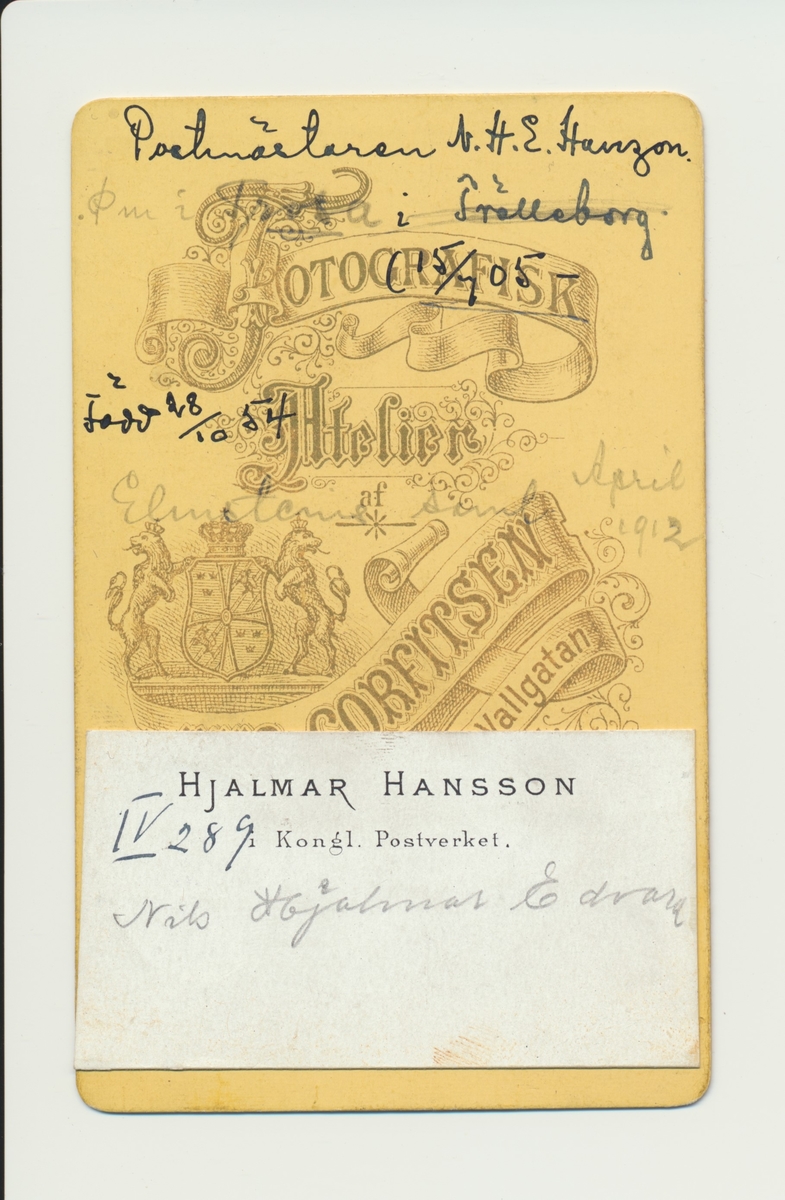 Postmästaren N. H. E. Hanzon.
Pm i Trosa i Trelleborg.
FOTOGRAFISK
(15/7 05
Atelier
Född 28/10 54
af
Elmstams saml. April
1912
CORFITSEN
Vallgatan
HJALMAR HANSSON
IV 289
i Kongl. Postverket.
Nils Hjalmar Edvard